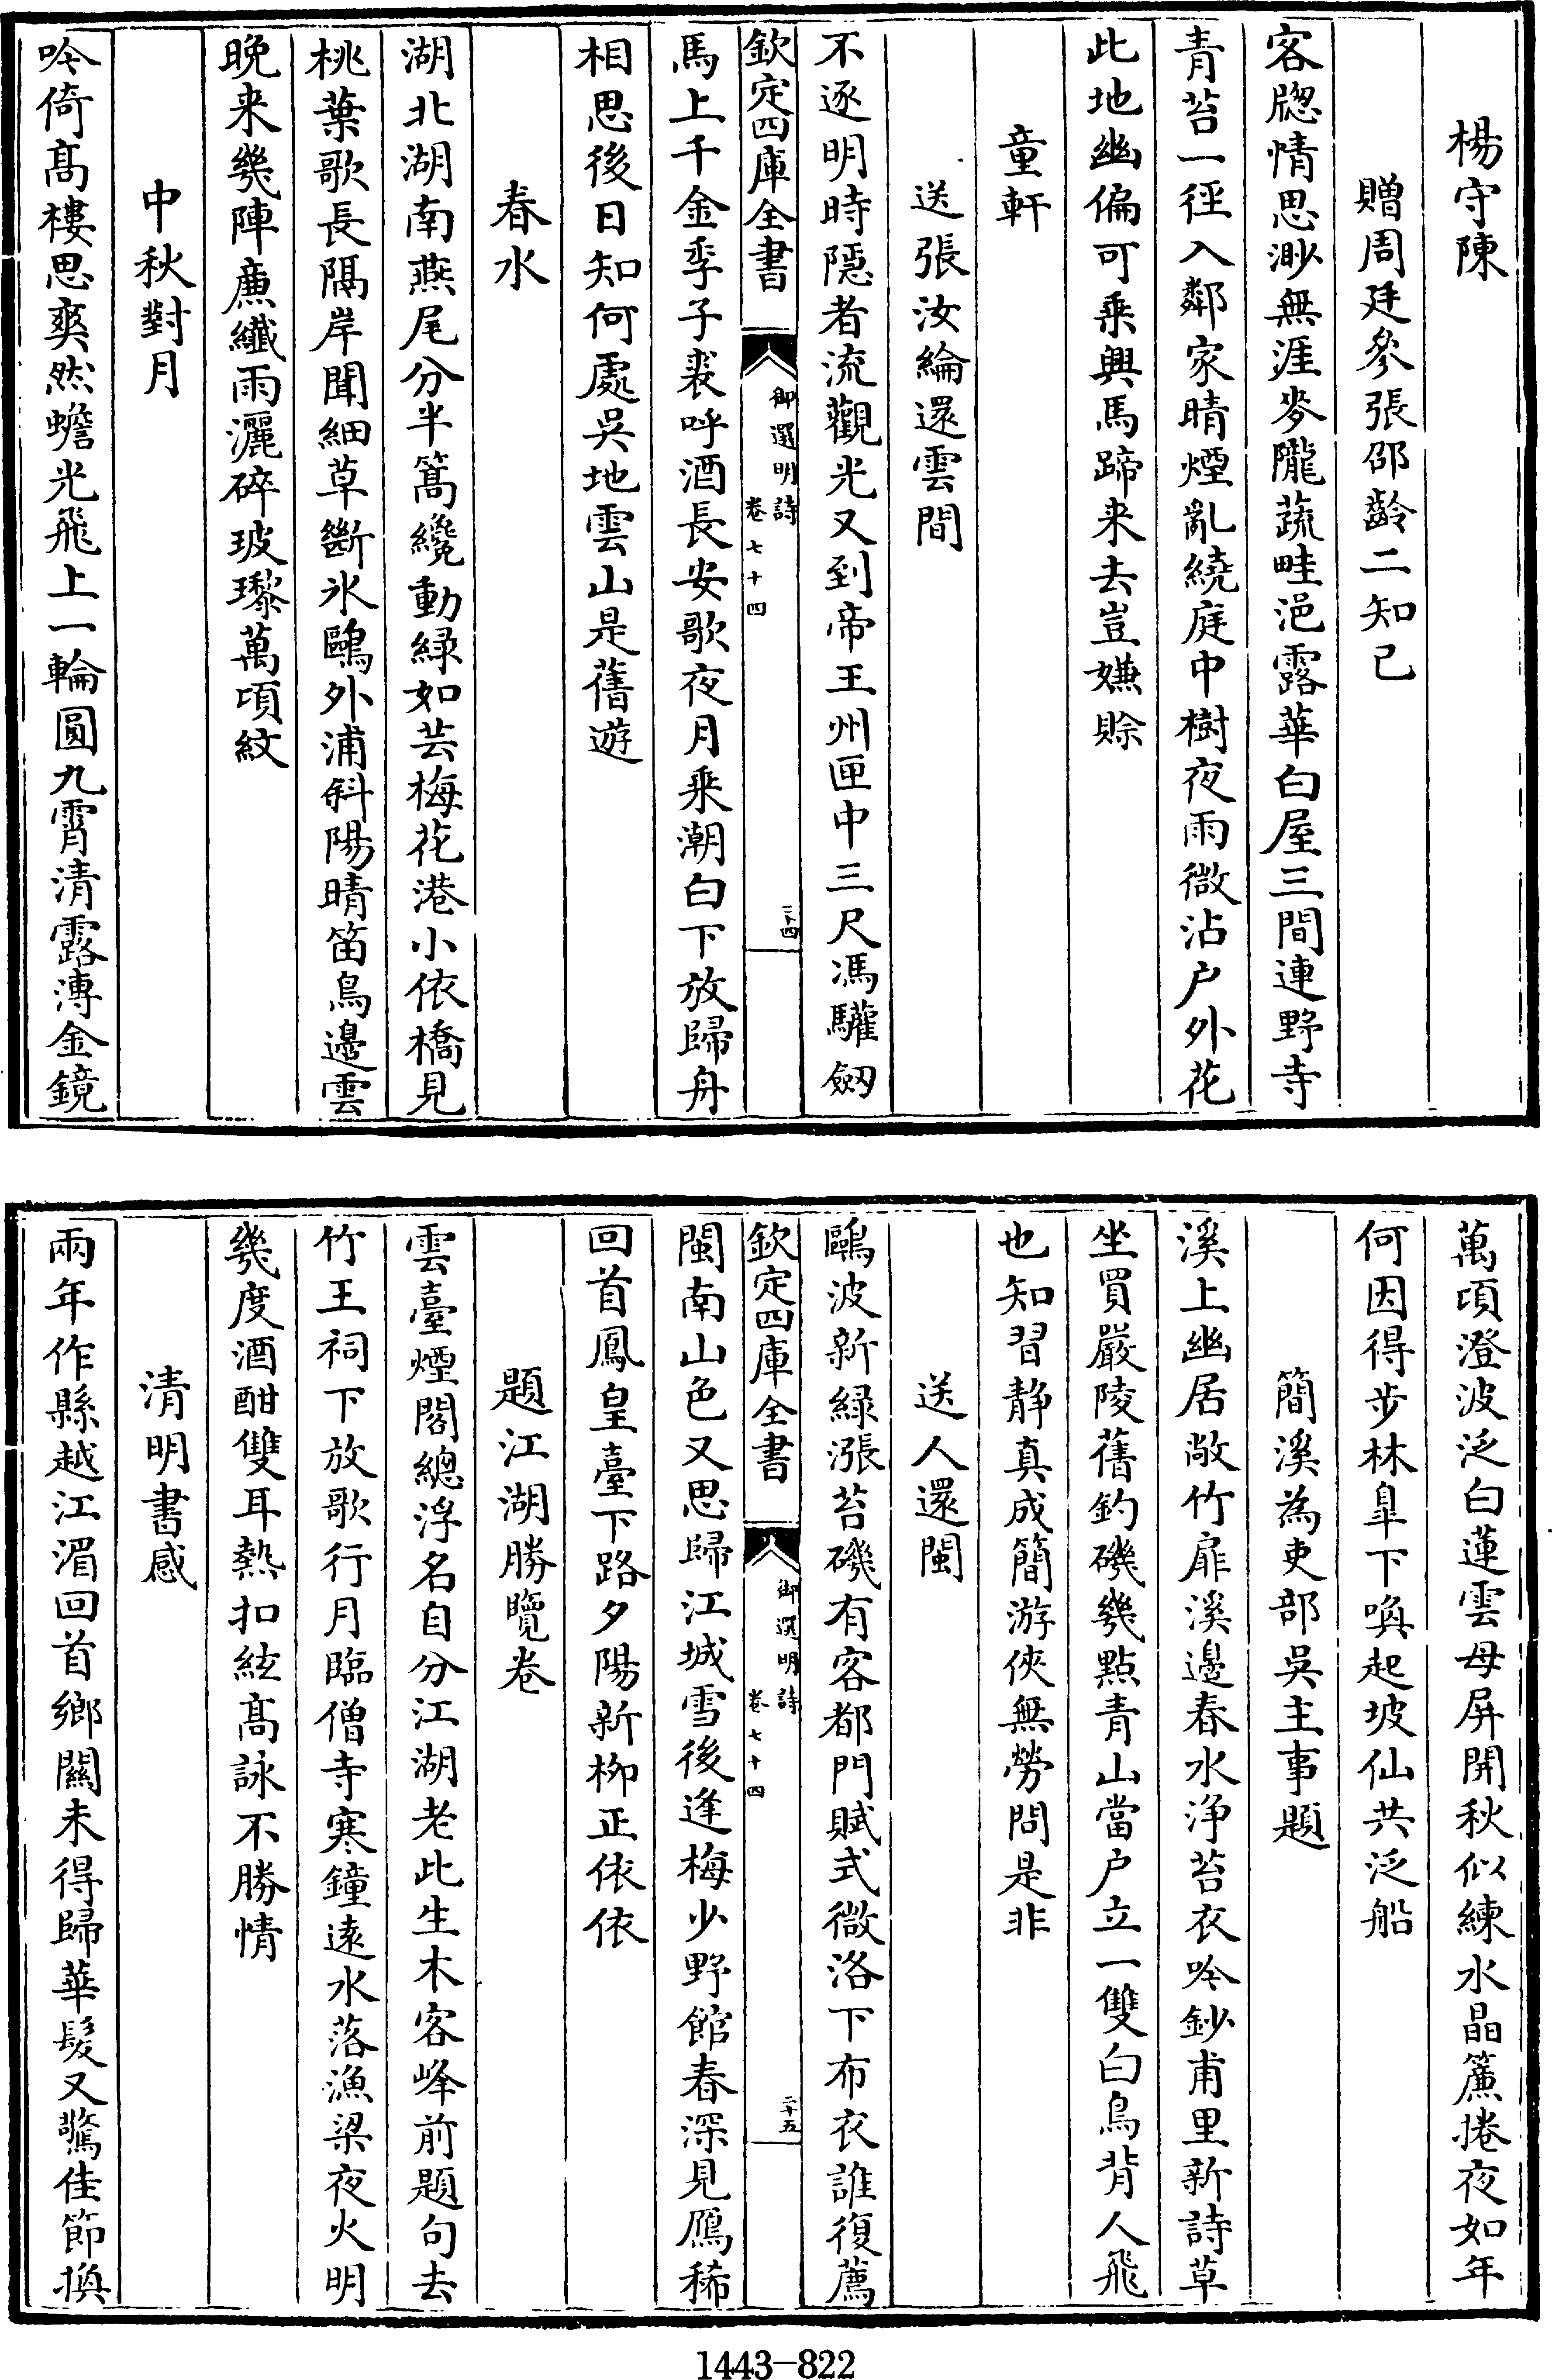 楊守陳
贈周廷參張邵齡二知己
客牕情思渺無涯麥隴蔬畦浥露華白屋三間連野寺
青苔一徑入鄰家晴煙亂繞庭中樹夜雨微沾户外花
此地幽偏可乗興馬蹄来去豈嫌賖
童軒
送張汝綸還雲間
不逐明時隠者流觀光又到帝王州匣中三尺馮驩劒
欽定四庫全書
御選明詩
卷七十四
二十四
馬上千金季子裘呼酒長安歌夜月乗潮白下放歸舟
相思後日知何處吳地雲山是舊遊
春水
湖北湖南燕尾分半篙纔動緑如芸梅花港小依橋見
桃葉歌長隔岸聞細草斷氷鷗外浦斜陽晴笛鳥邊雲
晩来幾陣㢘纎雨灑碎玻瓈萬頃紋
中秋對月
吟倚髙樓思爽然蟾光飛上一輪圓九霄清露漙金鏡
萬頃澄波泛白蓮雲母屏開秋似練水晶簾捲夜如年
何因得步林臯下喚起坡仙共泛船
簡溪為吏部吳主事題
溪上幽居敞竹扉溪邊春水浄苔衣吟鈔甫里新詩草
坐買嚴陵舊釣磯幾點青山當户立一雙白鳥背人飛
也知習静真成簡游俠無勞問是非
送人還閩
鷗波新緑漲苔磯有客都門賦式微洛下布衣誰復薦
欽定四庫全書
御選明詩
卷七十四
二十五
閩南山色又思歸江城雪後逢梅少野館春深見鴈稀
回首鳳皇臺下路夕陽新栁正依依
題江湖勝覽卷
雲臺煙閣總浮名自分江湖老此生木客峰前題句去
竹王祠下放歌行月臨僧寺寒鐘逺水落漁梁夜火明
幾度酒酣雙耳熱扣絃髙詠不勝情
清明書感
兩年作縣越江湄回首鄉關未得歸華髮又驚佳節換
1443-822